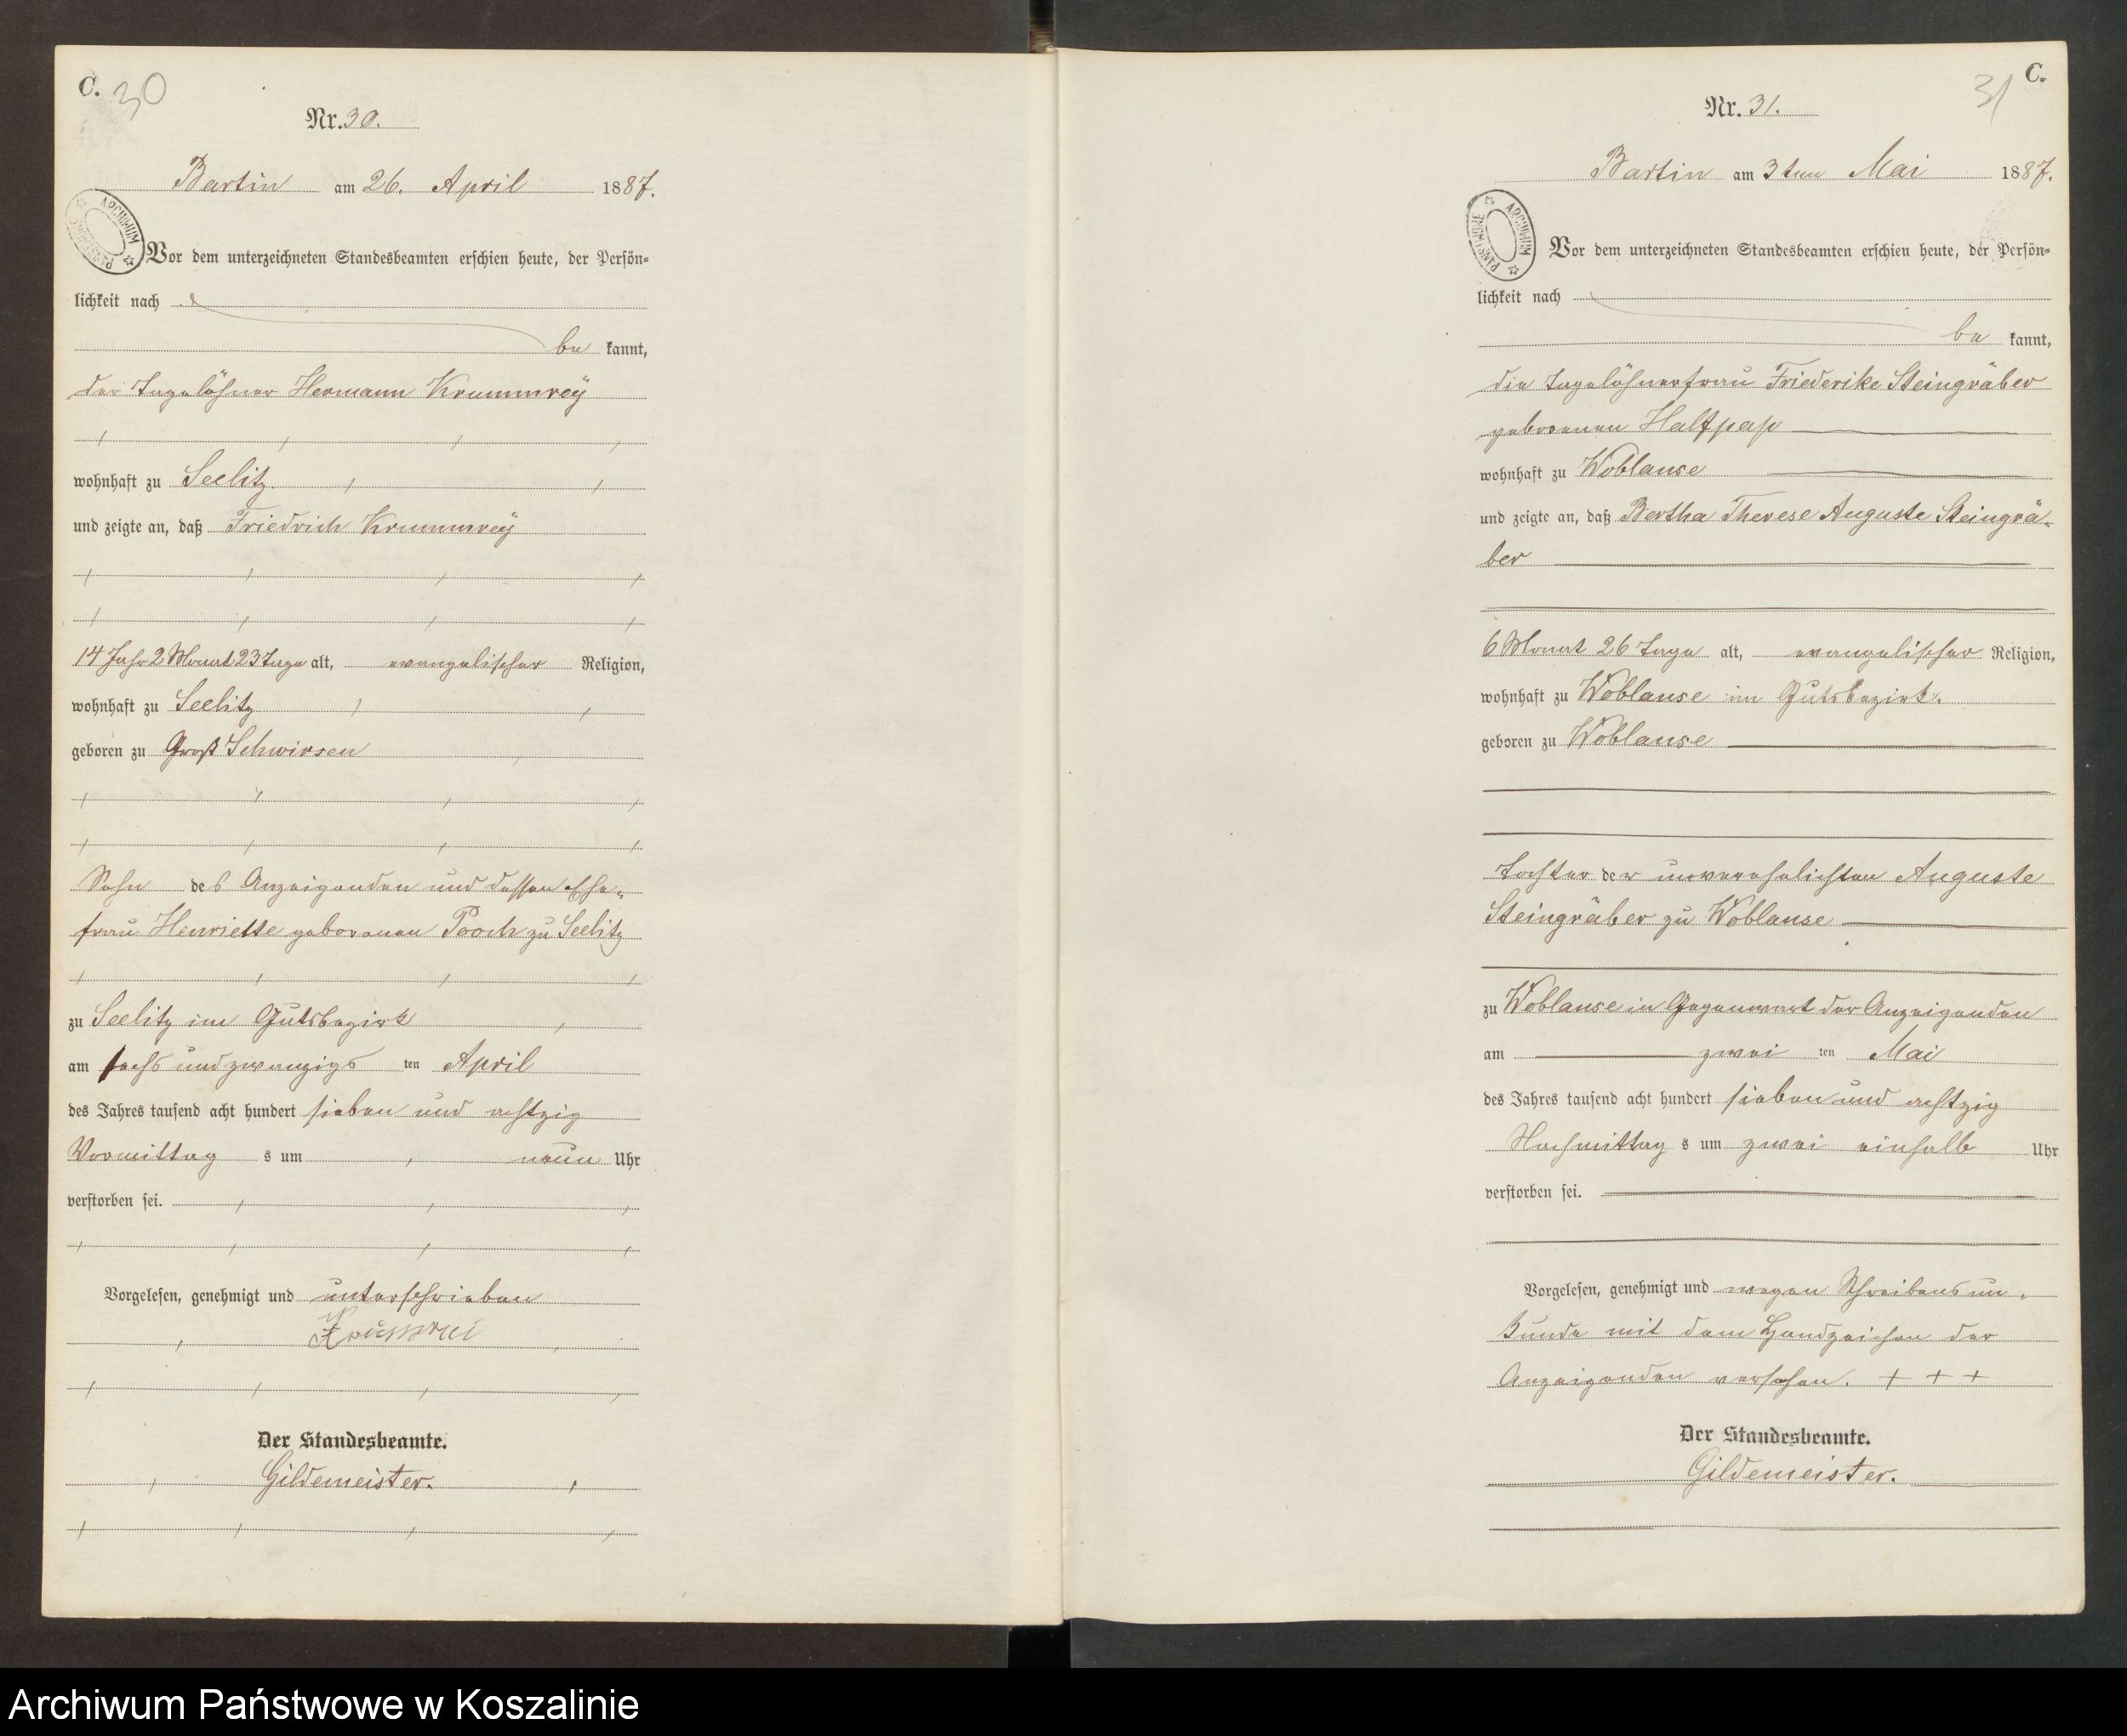 C. 30
Nr. 30.
Bartin am 26. April 1887.
ARCHIWUM PAŃSTWOWE
Vor dem unterzeichneten Standesbeamten erschien heute, der Persön-
lichkeit nach
be kannt,
der Tagelöhner Hermann Krummrey
wohnhaft zu Seelitz
und zeigte an, daß Friedrich Krummrey
14 Jahr 2 Monat 23 Tage alt, evangelischer Religion,
wohnhaft zu Seelitz
geboren zu Groß Schwirsen
Sohn des Anzeigenden und dessen Ehe-
frau Henriette geborenen Pooch zu Seelitz
zu Seelitz im Gutsbezirk
am sechs und zwanzigs ten April
des Jahres tausend acht hundert sieben und achtzig
Vormittag s um neun Uhr
verstorben sei.
Vorgelesen, genehmigt und unterschrieben
Der Standesbeamte.
Gildemeister.
31 C.
Nr. 31.
Bartin am 3ten Mai 1887.
ARCHIWUM PAŃSTWOWE
Vor dem unterzeichneten Standesbeamten erschien heute, der Persön-
lichkeit nach
be kannt,
die Tagelöhnerfrau Friederike Steingräber
geborenen Halfpap
wohnhaft zu Woblanse
und zeigte an, daß Bertha Therese Auguste Steingrä-
ber
6 Monat 26 Tage alt, evangelischer Religion,
wohnhaft zu Woblanse im Gutsbezirk.
geboren zu Woblanse
Tochter der unverehelichten Auguste
Steingräber zu Woblanse
zu Woblanse in Gegenwart der Anzeigenden
am zwei ten Mai
des Jahres tausend acht hundert sieben und achtzig
Nachmittag s um zwei einhalb Uhr
verstorben sei.
Vorgelesen, genehmigt und wegen Schreibensun-
kunde mit dem Handzeichen der
Anzeigenden versehen. + + +
Der Standesbeamte.
Gildemeister.
Archiwum Państwowe w Koszalinie